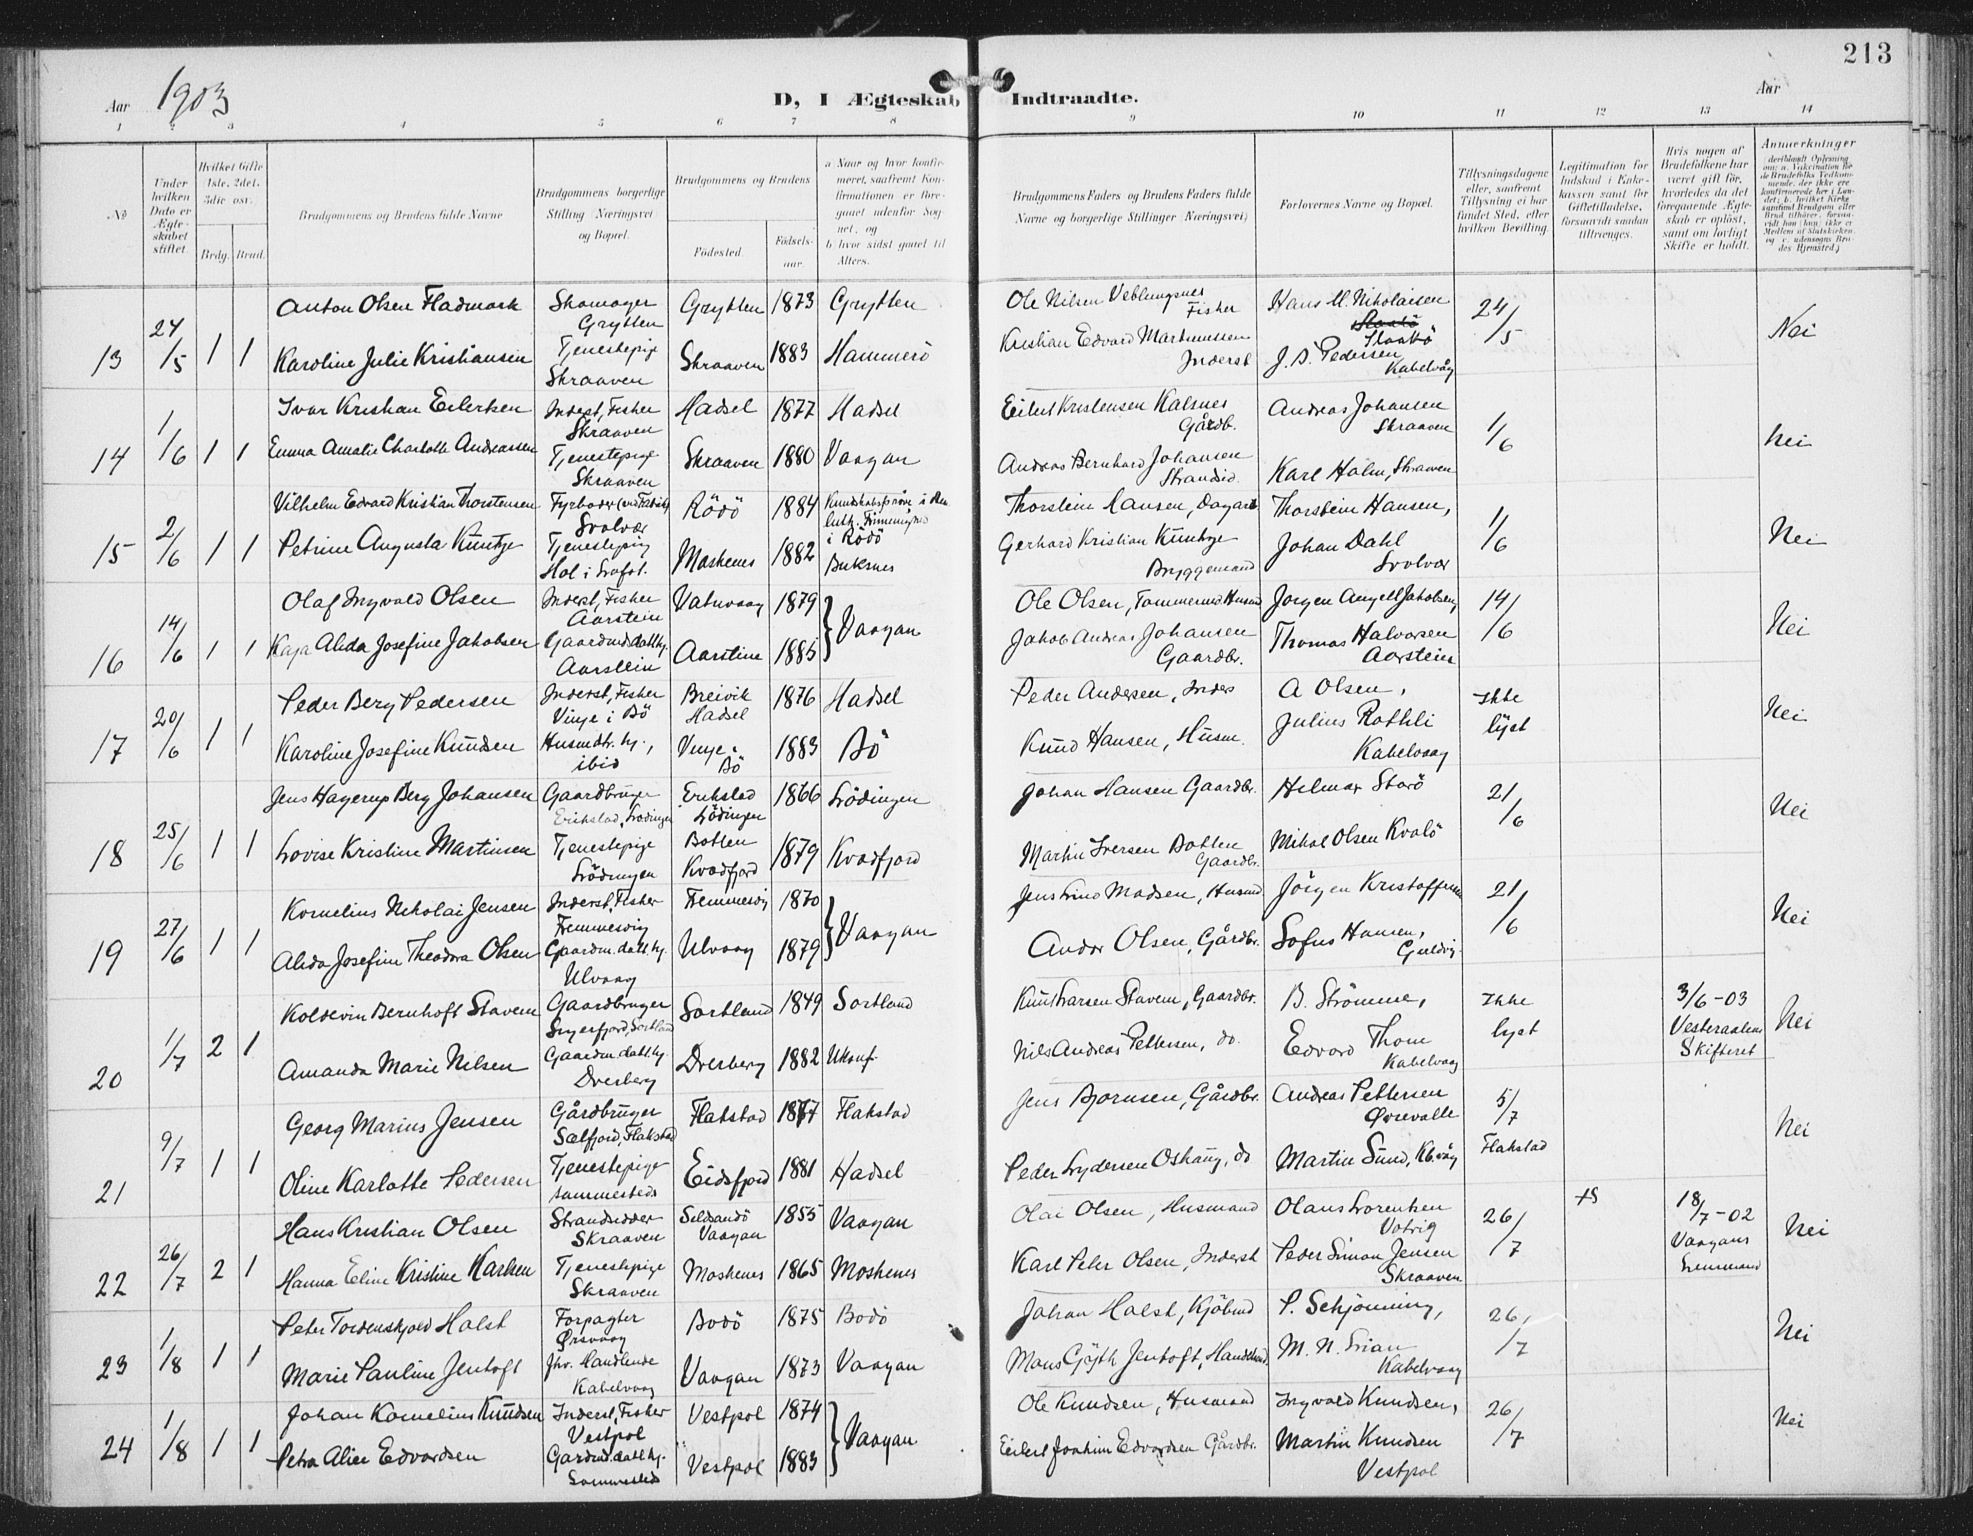 213
Aar 1903
D, I Ægteskab Indtraadte.
Aar
1 2 3 4 5 6 7 8 9 10 11 12 13 14
No
Under hvilken Dato er Ægteskabet stiftet.
Hvilket Gifte 1ste, 2det, 3die osv.
Brdg. Brud.
Brudgommens og Brudens fulde Navne
Brudgommens borgerlige Stilling Næringsvei og Bopæl.
Brudgommens og Brudens
Fødested.
Fødsels-aar.
a Naar og hvor konfirmeret, saafremt Konfirmationen er foregaaet udenfor Sognet, og b. hvor sidst gaaet til Alters.
Brudgommens Faders og Brudens Faders fulde Navne og borgerlige Stillinger Næringsvei)
Forlovernes Navne og Bopæl.
Tillysningsdagene eller, saafremt Tillysning ei har fundet Sted, efter hvilken Bevilling.
Legitimation for Indskud i Enkekassen samt for Giftetilladelse, forsaavidt saadan tiltrænges.
Hvis nogen af Brudefolkene har været gift før, hvorledes da det foregaaende Ægteskab er opløst, samt om lovligt Skifte er holdt.
Anmærkninger
13 24/5 1 1
Anton Olsen Fladmark Skomager Grytten Grytten 1873 Grytten Ole Nilsen Veblungsnes Fisher Hans M. Nikolaisen 24/5 Nei
Karoline Julie Kristiansen Tjenestepige Skraaven Skraaven 1883 Hammerö Kristian Edvard Martinussen Inderst J. D. Pedersen Kabelvåg
14 1/6 1 1
Ivar Kristian Eilertsen Inderst, Fisher Skraaven Hadsel 1877 Hadsel Eilert Kristensen Kalsnes Gårdb. Andreas Johansen Skraaven 1/6 Nei
Emma Amalie Charlotte Andreassen Tjenestepige Skraaven Skraaven 1880 Vaagan Andreas Bernhard Johansen Strandsid. Karl Holm, Skraaven
15 2/6 1 1
Vilhelm Edvard Kristian Thorstensen Fyrböder (ved Fabrik) Svolvær Rödö 1884 Kundskabsprøve i den luth. Frimenighed i Rödö Thorstein Hansen, Dagarb Thorstein Hansen, 1/6 Nei
Petrine Augusta Küntze Tjenestepig Hol i Lofot. Moskenes 1882 Buksnes Gerhard Kristian Küntze Bryggemand Johan Dahl Svolvær
16 14/6 1 1
Olaf Ingvald Olsen Inderst, Fisher Aarstein Vatnvaag 1879 } Vaagan Ole Olsen, Tømmermd Husmd Jørgen Angell Jakobsen, 14/6 Nei
Kaja Alida Josefine Jakobsen Gaardmd. datt. hj. Aarstein Aarstine 1885 Jakob Andreas Johansen Gaardbr. Thomas Halvorsen Aarstein
17 20/6 1 1
Peder Berg Pedersen Inderst, Fisher Vinje i Bö Breivik Hadsel 1876 Hadsel Peder Andersen, Inders A Olsen, Ikke lyst Nei
Karoline Josefine Knudsen Husmdtr. hj., ibid Vinje Bö 1883 Bö Knud Hansen, Husm. Julius Rathli Kabelvaag
18 25/6 1 1
Jens Hagerup Berg Johansen Gaardbruger Erikstad, Lödingen Erikstad Lödingen 1866 Lödingen Johan Hansen Gaardbr. Hilmar Storö 21/6 Nei
Lovise Kristine Martinsen Tjenestepige Lödingen Botten Kvædfjord 1879 Kvædfjord Martin Iversen Botten Gaardbr. Mikal Olsen Kvalö
19 27/6 1 1
Kornelius Nikolai Jensen Inderst, Fisher Fremmesvig Fremmesvig 1870 } Vaagan Jens Lind Madsen, Husmd Jörgen Kristoffersen 21/6 Nei
Alida Josefine Theodora Olsen Gaardm. datt. hj. Ulvaag Ulvaag 1879 Andor Olsen, Gårdbr. Sofus Hansen, Guldvig
20 1/7 2 1
Koldevin Bernhoft Stavem Gaardbruger Sigerfjord, Sortland Sortland 1849 Sortland Knut Larsen Stavem, Gaardbr. B. Strömme, Ikke lyst 3/6-03 Vesteraalens Skifteret Nei
Amanda Marie Nilsen Gaardm. datt. hj. Dverberg Dverberg 1882 Ukonf. Nils Andreas Pettersen, do. Edvard Thom Kabelvaag
21 9/7 1 1
Georg Marius Jensen Gårdbruger Selfjord, Flakstad Flakstad 1877 Flakstad Jens Bjornsen, Gårdbr. Andreas Pettersen Ørevalle 5/7 Flakstad Nei
Oline Karlotte Pedersen Tjenestepige sammesteds Eidsfjord 1881 Hadsel Peder Lydersen Oshaug, do Martin Sund, Kb.våg
22 26/7 2 1
Hans Kristian Olsen Strandsidder Skraaven Vaagan 1855 Vaagan Olai Olsen, Husmand Olaus Lorentsen Votvig 26/7 18/7-02 Vaagans Lensmand Nei
Hanna Eline Kristine Karlsen Tjenestepige Skraaven Moskenes 1865 Moskenes Karl Peter Olsen, Inderst Peder Simon Jensen Skraaven
23 1/8 1 1
Peter Tordenskjold Holst Forpagter Ørsvaag Bodö 1875 Bodö Johan Holst, Kjöbmd P. Schjönning, 26/7 Nei
Marie Pauline Jentoft fhv. Handlende Kabelvaag Vaagan 1873 Vaagan Mons Gjyth Jentoft, Handelsmd. M. N. Lian Kabelvaag
24 1/8 1 1
Johan Kornelius Knudsen Inderst, Fisher Vestpol Vestpol 1874 } Vaagan Ole Knudsen, Husmand Ingvald Knudsen, 26/7 Nei
Petra Alice Edvardsen Gardmd. datt. hj. Sammesteds Vestpol 1883 Eilert Joakim Edvardsen Gårdbr. Martin Knudsen Vestpol